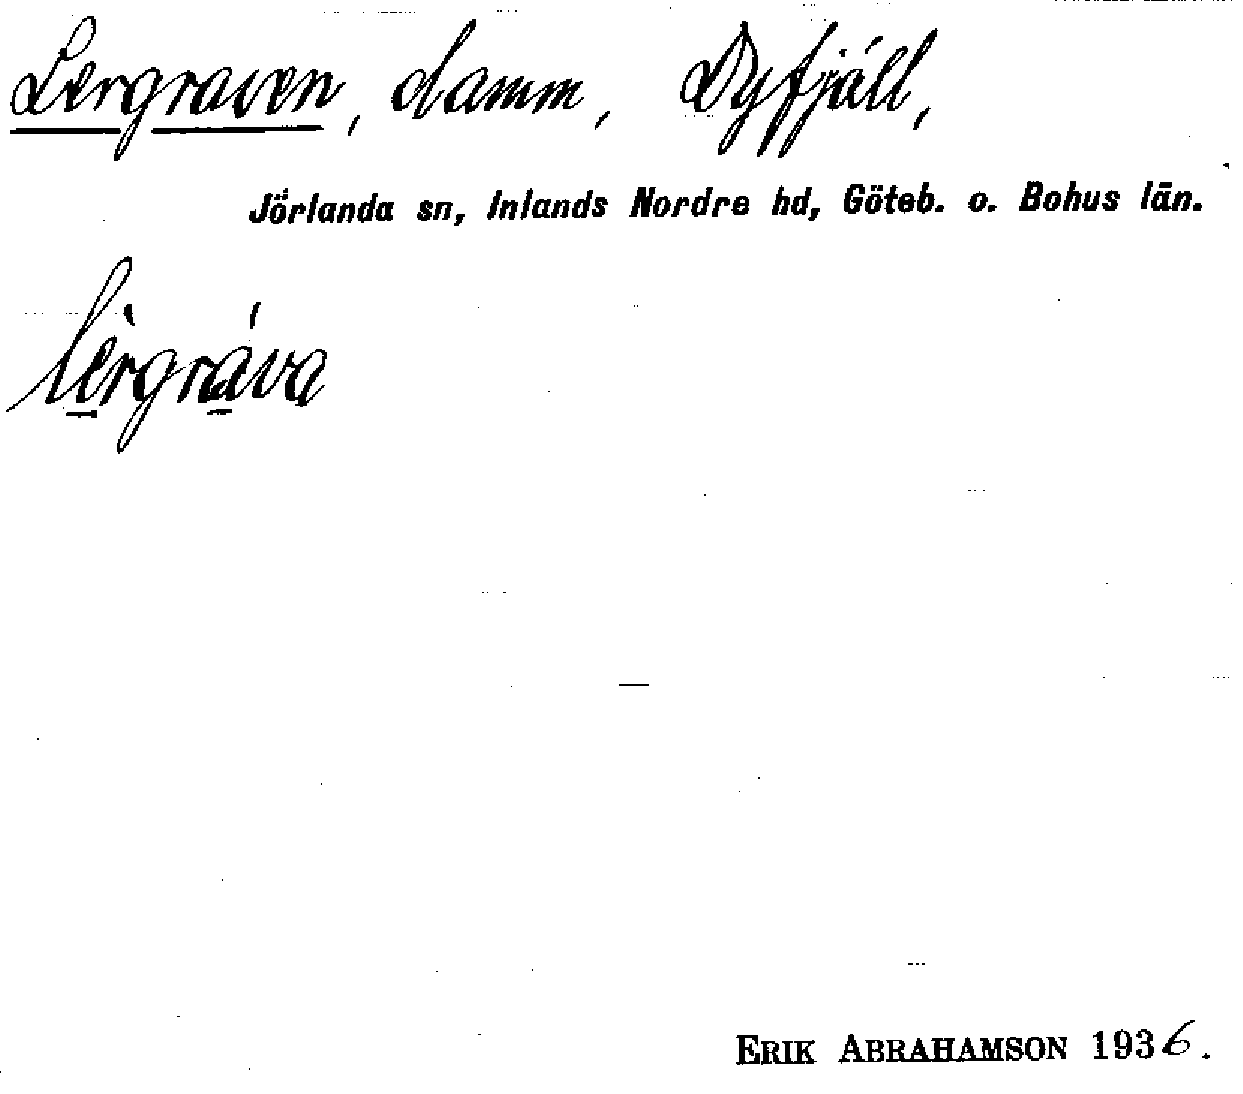 Lergraven, damm, Dyfjäll,
Jörlanda sn, Inlands Nordre hd, Göteb. o. Bohus län.
lèrgráva
ERIK ABRAHAMSON 1936.